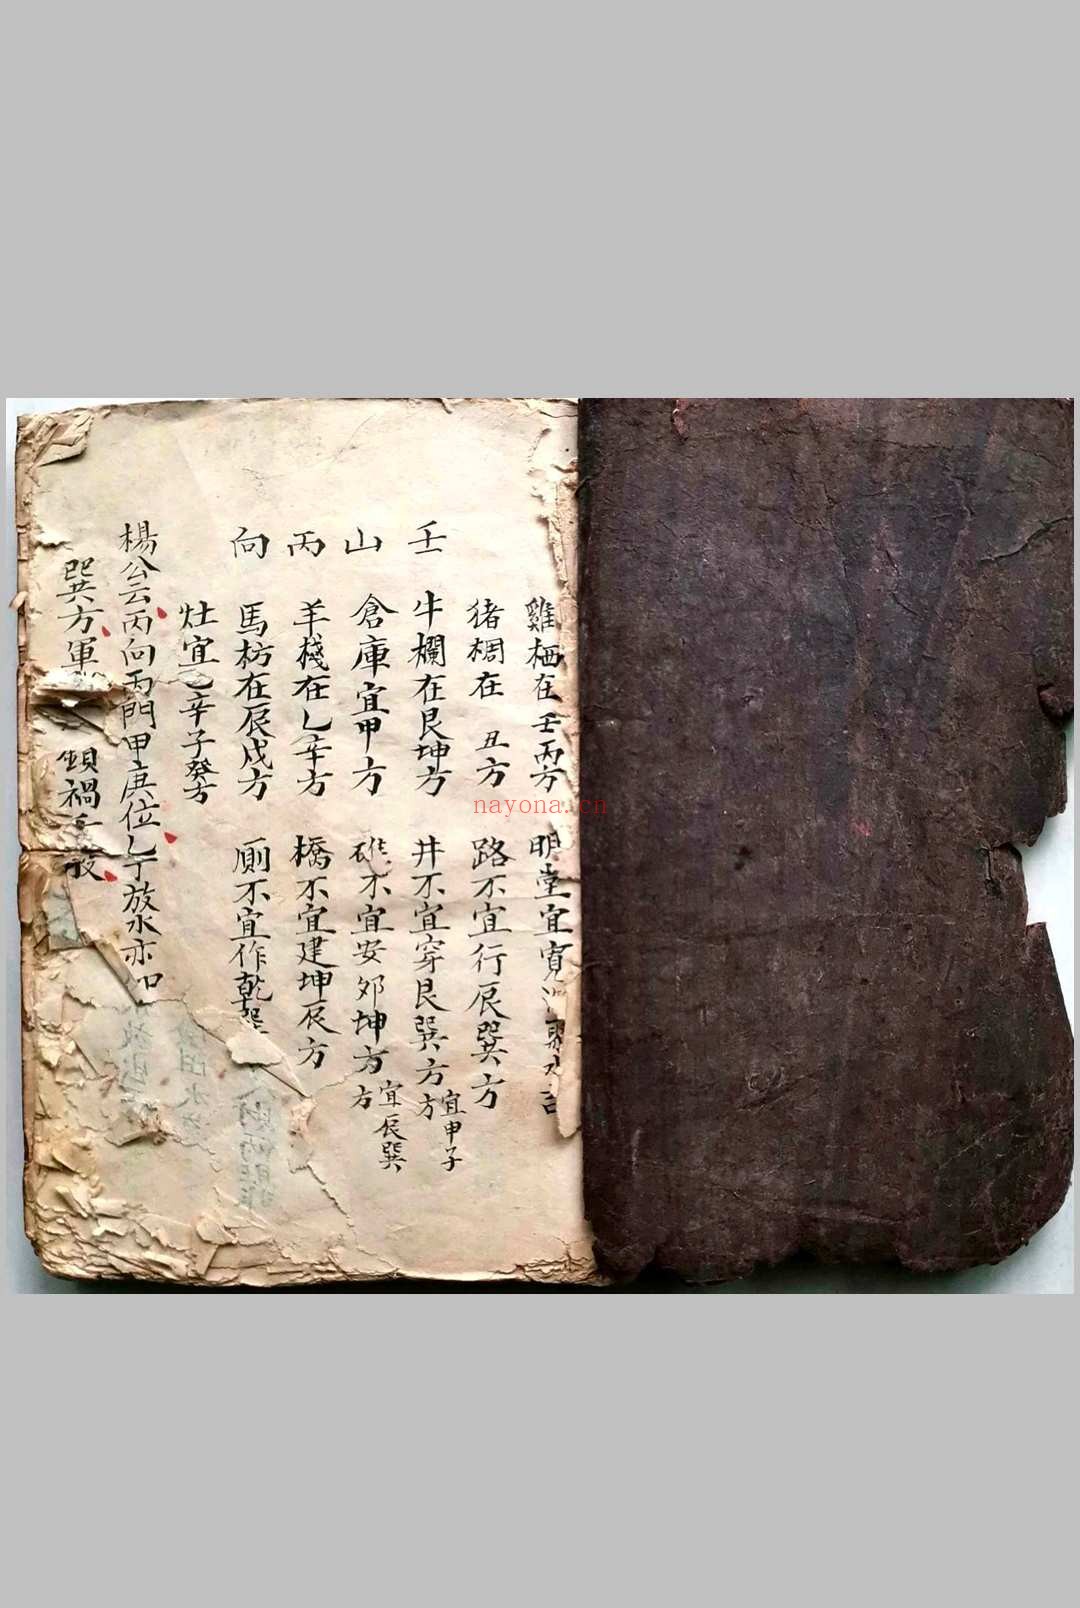 雞栖在壬丙方 明堂宜寬 聚水吉
猪椆在 丑方 路不宜行辰巽方
壬 牛欄在艮坤方 井不宜穿艮巽方 宜甲子方
山 倉庫宜甲方 碓不宜安卯坤方 宜辰巽方
丙 羊棧在乙辛方 橋不宜建坤辰方
向 馬枋在辰戌方 廁不宜作乾巽
灶宜乙辛子癸方
楊公云丙向丙門甲庚位乙辛放水亦
巽方軍 禍
nayona.cn